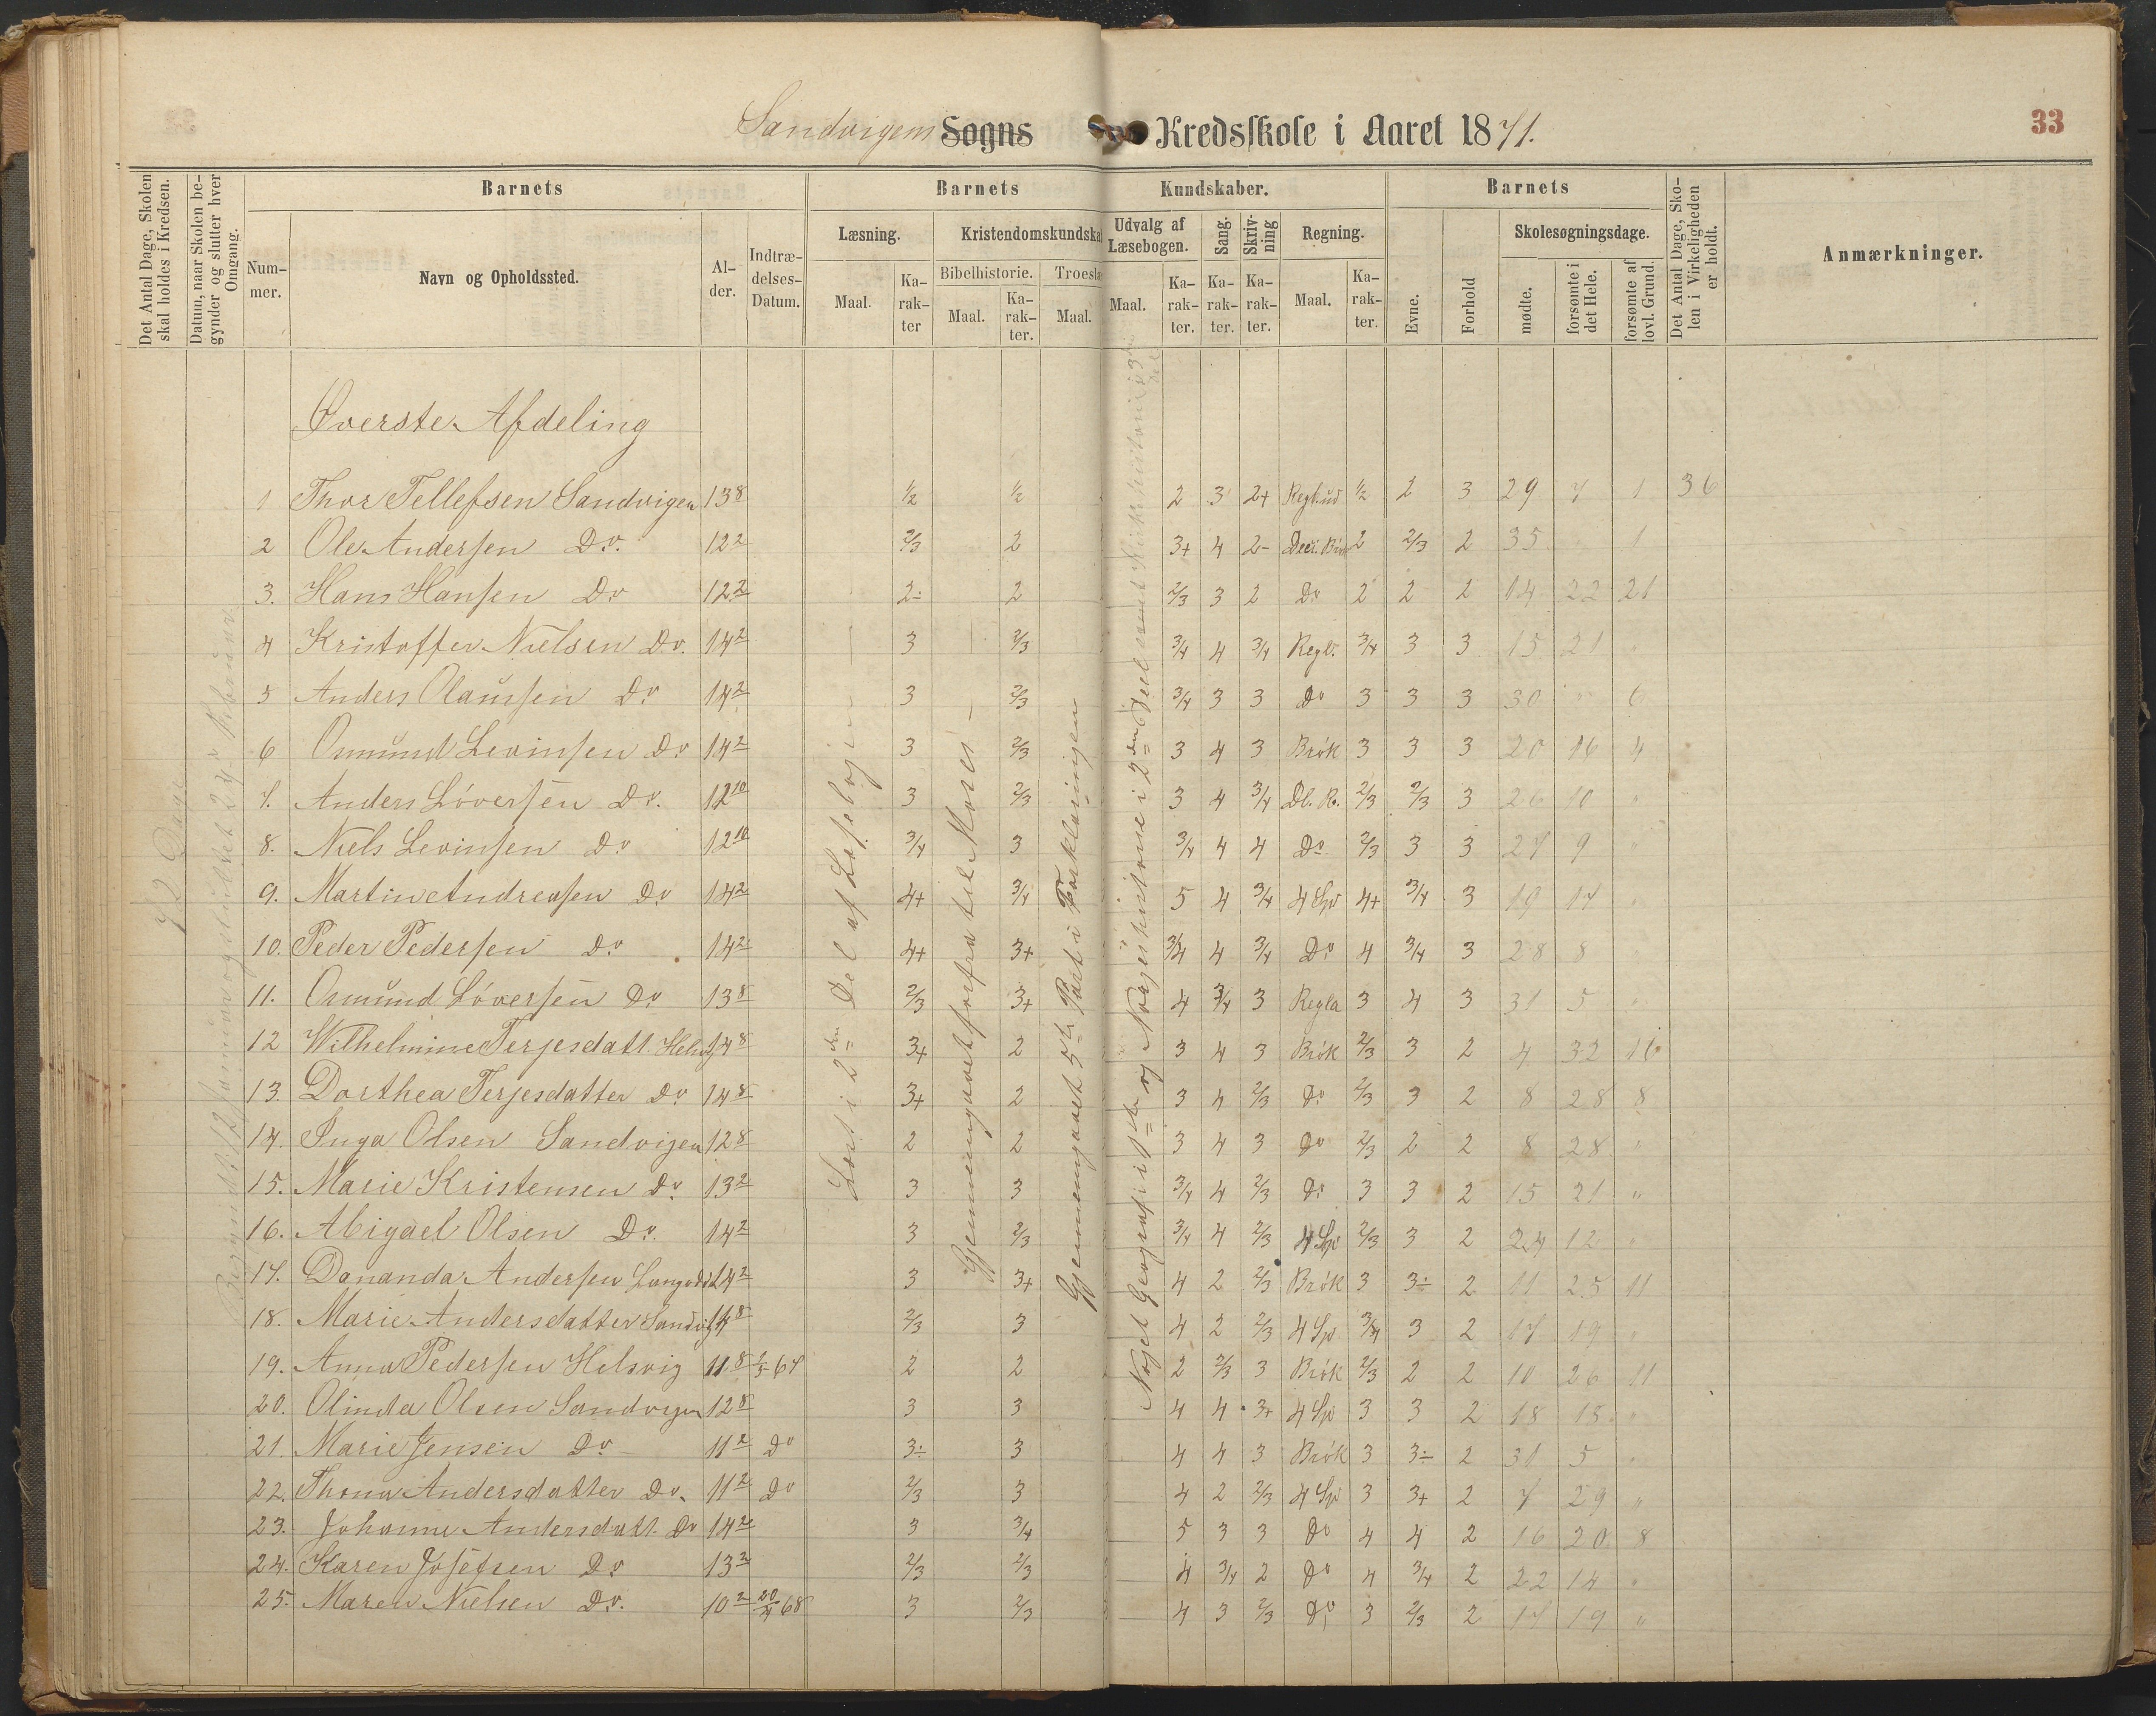 Sandvigens Sogns Kredsskole i Aaret 1871.
33
Det Antal Dage, Skolen skal holdes i Kredsen.
Datum, naar Skolen begynder og slutter hver Omgang.
Barnets
Nummer.
Navn og Opholdssted.
Alder.
Indtrædelses-Datum.
Barnets Kundskaber.
Læsning.
Maal.
Karakter
Kristendomskundskab
Bibelhistorie.
Maal.
Karakter.
Troeslæ
Maal.
Udvalg af Læsebogen.
Maal.
Karakter.
Sang.
Karakter.
Skrivning
Karakter.
Regning.
Maal.
Karakter.
Barnets
Evne.
Forhold
Skolesøgningsdage.
mødte.
forsømte i det Hele.
forsømte af lovl. Grund.
Det Antal Dage, Skolen i Virkeligheden er holdt.
Anmærkninger.
Øverste Afdeling
72 Dage
Læst i 2den Del af Læsebogen
Gjennemgaaet forfra til Moses
Gjennemgaaet 5te Part i Forklaringen
1 Thor Tellefsen Sandvigen 13 8 1/2 1/2 2 3 2+ Regl. ud 1/2 2 3 29 7 1 36
2 Ole Andersen Do. 12 2 2/3 2 3+ 4 2- Deci. Brøk 2 2/3 2 35 1
3. Hans Hansen Do 12 2 2÷ 2 2/3 3 2 Do 2 2 2 14 22 21
4 Kristoffer Nielsen Do. 14 2 3 2/3 3/4 4 3/4 Regl. 3/4 3 3 15 21 "
5 Anders Olaussen Do 14 2 3 2/3 3/4 3 3 Do 3 3 3 30 6
6 Osmund Levinsen Do 14 2 3 2/3 3 4 3 Brøk 3 3 3 20 16 4
7. Anders Løversen Do. 12 10 3 2/3 3 4 3/4 Dl. R. 2/3 2/3 3 26 10 "
8. Niels Levinsen Do 12 10 3/4 3 3/4 4 4 Do 2/3 3 3 27 9 "
9. Martin Andreasen Do 14 2 4+ 3/4 5 4 3/4 4 Sp 4+ 3/4 3 19 17 "
10. Peder Pedersen Do 14 2 4+ 3+ 3/4 4 3/4 Do 4 3/4 3 28 8 "
11. Osmund Løversen Do 13 8 2/3 3+ 4 3/4 3 Regla 3 4 3 31 5 "
12 Wilhelmine Terjesdatt. Helsvig 14 8 3+ 2 3 4 3 Brøk 2/3 3 2 4 32 16
13. Dorthea Terjesdatter Do 14 8 3+ 2 3 4 2/3 Do 2/3 3 2 8 28 8
14. Inga Olsen Sandvigen 12 8 2 2 3 4 3 Do 2/3 2 2 8 28 "
15. Marie Kristensen Do. 13 2 3 3 3/4 4 2/3 Do 3 3 2 15 21 "
16. Abigael Olsen Do. 14 2 3 2/3 3/4 4 2/3 4 Sp 2/3 3 2 24 12 "
17. Danandar Andersen 14 2 3 3+ 4 2 2/3 Brøk 3 3÷ 2 11 25 11
18. Marie Andersdatter Sandvig 14 8 2/3 3 4 2 2/3 4 Sp 3/4 3 2 17 19 "
19. Anna Pedersen Helsvig 11 8 2/5 67 2 2 2 2/3 3 Brøk 2/3 2 2 10 26 11
20. Olinda Olsen Sandvigen 12 8 3 3 4 4 3+ 4 Sp 3 3 2 18 18 "
21. Marie Jensen Do 11 2 Do 3÷ 3 4 4 3 Brøk 3 3÷ 2 31 5 "
22. Thona Andersdatter Do. 11 2 Do 2/3 3 4 2 2/3 4 Sp 3 3+ 2 7 29 "
23. Johanne Andersdatt. Do 14 2 3 3/4 5 3 3 Do 4 4 2 16 20 8
24. Karen Josefsen Do 13 2 2/3 2/3 4 3/4 2 Do 4 3/4 2 22 14 "
25. Maren Nielsen Do. 10 2 20/4 68 3 2/3 4 3 2/3 Do 3 2/3 2 17 19 "